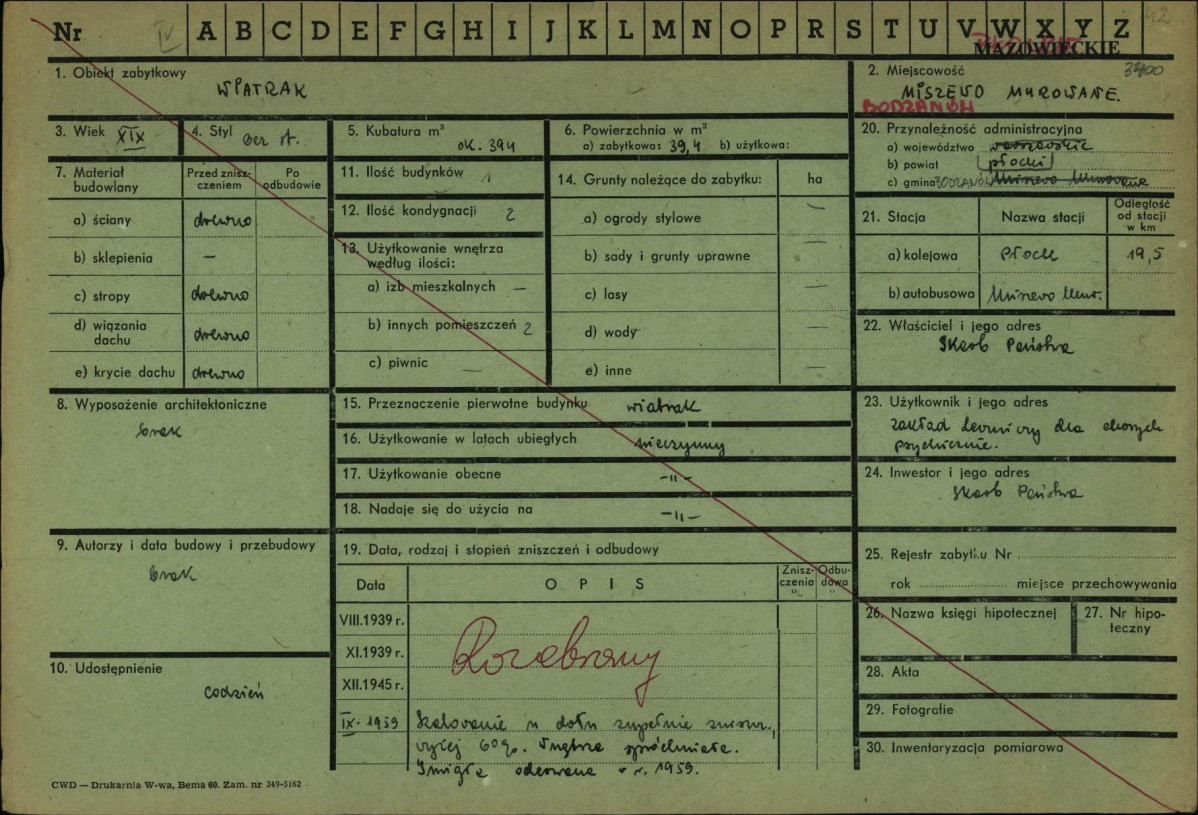 Nr IV A B C D E F G H I J K L M N O P R S T U V W X Y Z 42
MAZOWIECKIE
1. Obiekt zabytkowy
WIATRAK
2. Miejscowość 3700
MISZEWO MUROWANE.
BODZANÓW
3. Wiek XIX
4. Styl bez st.
5. Kubatura m³
ok. 394
6. Powierzchnia w m²
a) zabytkowa: 39,4 b) użytkowa:
20. Przynależność administracyjna
a) województwo warszawskie
b) powiat płocki
c) gmina BODZANÓW Miszewo Murowane
7. Materiał budowlany
Przed znisz-
czeniem
Po
odbudowie
a) ściany drewno
b) sklepienia —
c) stropy drewno
d) wiązania
dachu drewno
e) krycie dachu drewno
11. Ilość budynków 1
12. Ilość kondygnacji 2
13. Użytkowanie wnętrza
według ilości:
a) izb mieszkalnych —
b) innych pomieszczeń 2
c) piwnic —
14. Grunty należące do zabytku: ha
a) ogrody stylowe —
b) sady i grunty uprawne —
c) lasy —
d) wody —
e) inne —
21. Stacja
Nazwa stacji
Odległość
od stacji
w km
a) kolejowa Płock 19,5
b) autobusowa Miszewo Mur.
22. Właściciel i jego adres
Skarb Państwa
8. Wyposażenie architektoniczne
brak
15. Przeznaczenie pierwotne budynku wiatrak
16. Użytkowanie w latach ubiegłych nieczynny
17. Użytkowanie obecne -„-
18. Nadaje się do użycia na -„-
23. Użytkownik i jego adres
Zakład leczniczy dla chorych
psychicznie.
24. Inwestor i jego adres
Skarb Państwa
9. Autorzy i data budowy i przebudowy
brak
19. Data, rodzaj i stopień zniszczeń i odbudowy
Data
OPIS
Znisz-
czenia
%
Odbu-
dowa
%
VIII.1939 r.
XI.1939 r.
XII.1945 r.
Rozebrany
IX. 1959 Szalowanie u dołu zupełnie zniszcz.,
wyżej 60%. Wnętrze spróchniałe.
Śmigła oderwane w r. 1959.
25. Rejestr zabytku Nr
rok miejsce przechowywania
26. Nazwa księgi hipotecznej
27. Nr hipo-
teczny
10. Udostępnienie
codzień
28. Akta
29. Fotografie
30. Inwentaryzacja pomiarowa
CWD — Drukarnia W-wa, Bema 60. Zam. nr 349-5162